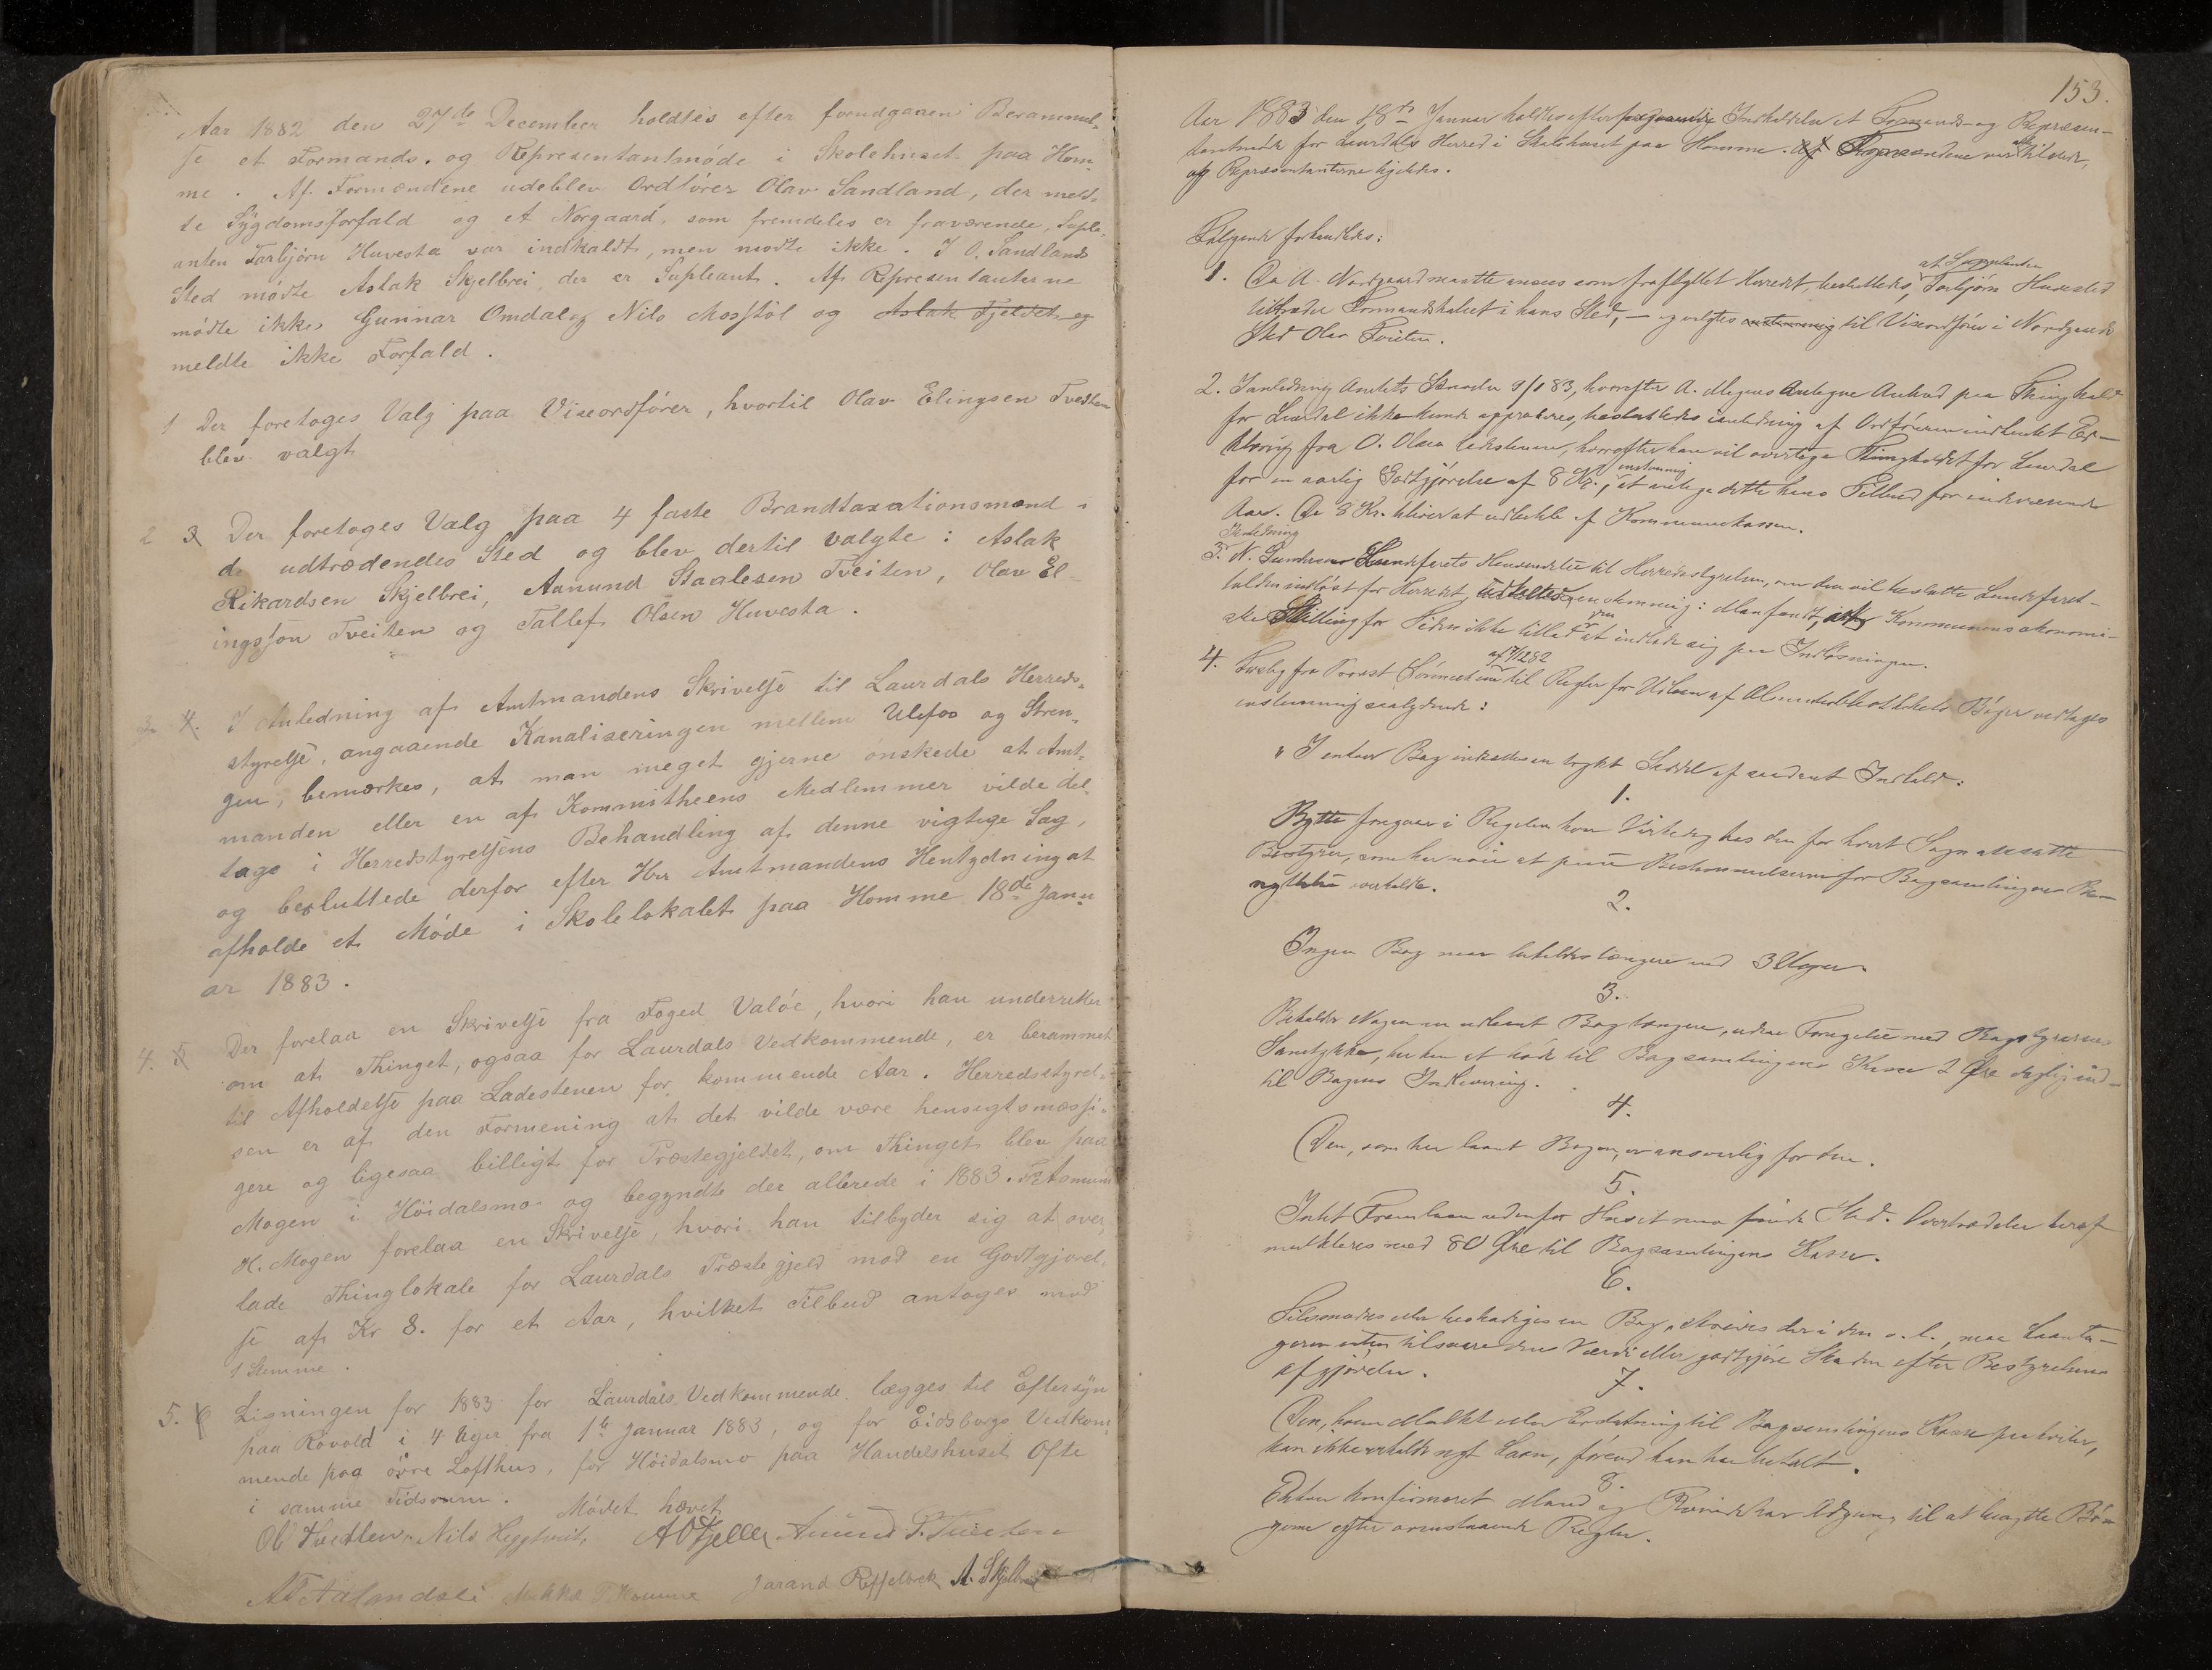 Aar 1882 den 27de December holdtes efter forudgaaen Berammel-
se et Formands- og Representantmöde i Skolehuset paa Hom-
me. Af Formændene udeblev Ordförer Olav Sandland, der meld-
te Sygdomsforfald og A Norgaard som fremdeles er fraværende, Suple-
anten Torbjörn Huvesta var indkaldt, men mödte ikke. I O. Sandlands
Sted mödte Aslak Skjelbrei, der er Supleant. Af Representanterne
mödte ikke Gunnar Omdal og Nils Mosstöl og Aslak Fjeldet og
meldte ikke Forfald.
1 Der foretoges Valg paa Viseordförer, hvortil Olav Elingsen Tvedten
blev valgt
2 3 Der foretoges Valg paa 4 faste Brandtaxationsmænd i
de udtrædendes Sted og blev dertil valgte: Aslak
Rikardsen Skjelbrei, Aanund Staalesen Tveiten, Olav El-
ingssön Tveiten og Tallef Olsen Huvesta.
3. 4. I Anledning af Amtmandens Skrivelse til Laurdals Herreds-
styrelse, angaaende Kanaliseringen mellem Ulefos og Stren-
gen, bemærkes, at man meget gjerne önskede at Amt-
manden eller en af Kommitheens Medlemmer vilde del-
tage i Herredstyrelsens Behandling af denne vigtige Sag,
og besluttede derfor efter Hr Amtmandens Hentydning at
afholde et Möde i Skolelokalet paa Homme 18de Janu
ar 1883.
4. 5 Der forelaa en Skrivelse fra Foged Valöe, hvori han underretter
om at Thinget, ogsaa for Laurdals Vedkommende, er berammet
til Afholdelse paa Ladestenen for kommende Aar. Herredsstyrel-
sen er af den Formening at det vilde være hensigtsmæssi-
gere og ligesaa billigt for Præstegjeldet, om Thinget blev paa
Mogen i Höidalsmo og begyndte der allerede i 1883. Fra Asmund
H. Mogen forelaa en Skrivelse, hvori han tilbyder sig at over-
lade Thinglokale for Laurdals Præstegjeld mod en Godtgjörel-
se af Kr 8. for et Aar, hvilket Tilbud antoges mod
1 Stemme.
5. 6 Ligningen for 1883 for Laurdals Vedkommende lægges til Eftersyn
paa Rovold i 4 Uger fra 1te Januar 1883, og for Eidsborgs Vedkom-
mende paa övre Lofthus, for Höidalsmo paa Handelshuset Ofte
i samme Tidsrum. Mödet hævet
Ol Tvedten, Nils Heggtveit, A O Fjelle Aanund S. Tveiten
Jarand Reffelbrek A. Skjelbrei
153.
Aar 1883 den 18de Januar holdtes efter foregaaende Indkaldelse et Formands- og Repræsen-
tantmöde for Laurdals Herred i Skolehuset paa Homme. Af Formændene var alle tilstede,
af Repræsentanterne ligeledes.
Fölgende forhandledes:
1. Da A. Nordgaard maatte ansees som fraflyttet Herredet, besluttedes, at Supplanten Torbjörn Huvested
tiltræder Formandskabet i hans Sted, – og valgtes enstemmig til Viseordförer i Nordgaards
Sted Olav Tveiten.
2. I Anledning Amtets Skrivelse 9/1 83, hvorefter A. Mogens Anbud paa Thinghold
for Laurdal ikke kunde approberes, besluttedes i anledning af Ordförerens indhentet Er-
klæring fra O. Olsen Ladestenen, hvorefter han vil overtage Thingholdet for Laurdal
for en aarlig Godtgjörelse af 8 Kr., enstemmig at antage dette hans Tilbud for indeværende
Aar. De 8 Kr. bliver at udbetale af Kommunekassen.
3. I Anledning N. Gundersen Lundefarets Henvendelse til Herredsstyrelsen, om den vil beslutte Lundefaret-
tolden indlöst for Herredet, udtaltes enstemmig: Man fandt, at Kommunens ökonomi-
ske Stilling for Tiden ikke tillod den at indlade sig paa Indlösningen.
4. Forslag fra Provst Sönnesten af 7/12 82 til Regler for Udlaan af Almuebibliothekets Böger vedtages
enstemmig saalydende:
"I enhver Bog indsættes en trykt Seddel af saadant Indhold:
1.
Bytte foregaar i Regelen hver Virkedag hos den for hvert Sogn ansatte
Bestyrer, som har nöie at paase Bestemmelserne for Bogsamlingens Be-
nyttelse overholdte.
2.
Ingen Bog maa beholdes længere end 3 Uger.
3.
Beholder Nogen en udlaant Bog længere, uden Foregaaende med Bogstyrerens
Samtykke, bör han at böde til Bogsamlingens Kasse 2 Öre daglig ind-
til Bogens Indlevering.
4.
Den, som har laant Bogen, er ansvarlig for den.
5.
Intet Fremlaan udenfor Huset maa finde Sted. Overtrædelse heraf
mulkteres med 80 Öre til Bogsamlingens Kasse.
6.
Tilsmudses eller beskadiges en Bog, skrives der i den o. l., maa Laanta-
geren enten tilsvare dens Værdi eller godtgjöre Skaden efter Bestyrelsens
afgjörelse.
7.
Den, hvem Mulkt eller Erstatning til Bogsamlingens Kasse paahviler,
kan ikke erholde nyt Laan, förend han har betalt.
8.
Enhver konfirmeret Mand og Kvinde har Adgang til at benytte Bö-
gerne efter ovenstaaende Regler.